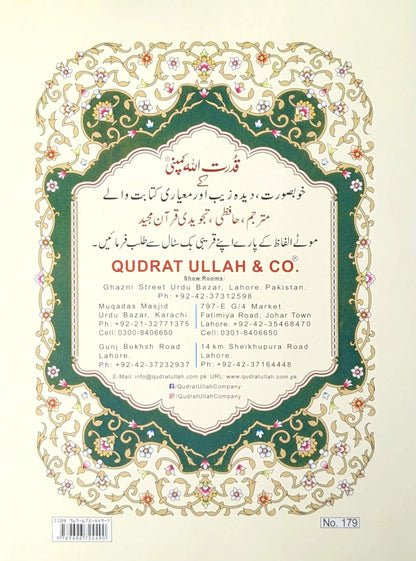 قدرت اللہ کمپنی®
کے
خوبصورت، دیدہ زیب اور معیاری کتابت والے
مترجم، حافظی، تجویدی قرآن مجید
موٹے الفاظ کے پارے اپنے قریبی بک سٹال سے طلب فرمائیں۔
QUDRAT ULLAH & CO.®
Show Rooms:
Ghazni Street Urdu Bazar, Lahore. Pakistan.
Ph: +92-42-37312598
Muqadas Masjid
Urdu Bazar, Karachi.
Ph: +92-21-32771375
Cell: 0300-8406650
797-E G/4 Market
Fatimiya Road, Johar Town
Lahore. +92-42-35468470
Cell: 0301-8406650
Gunj Bukhsh Road
Lahore.
Ph: +92-42-37232937
14 km Sheikhupura Road
Lahore.
Ph: +92-42-37164448
E-Mail: info@qudratullah.com.pk URL: www.qudratullah.com.pk
/QudratUllahCompany
/QudratUllahCompany
No. 179